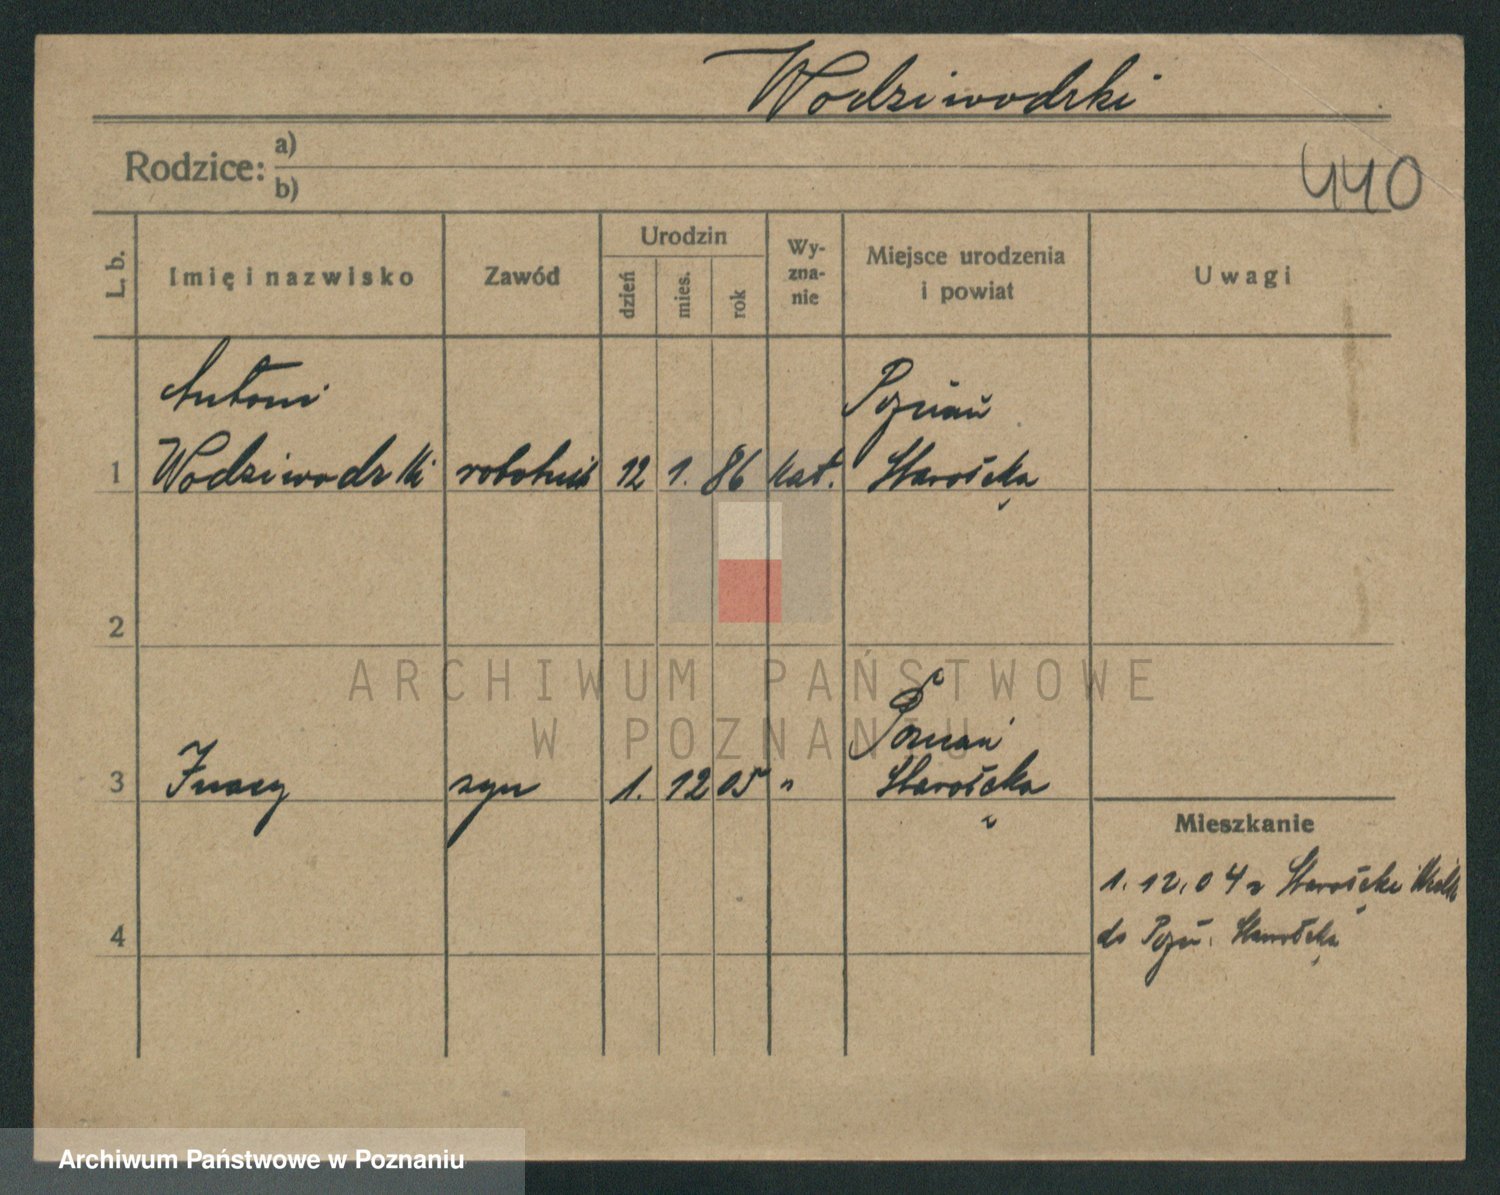 Wodziwodzki
Rodzice: a)
b)
440
L. b.
Imię i nazwisko
Zawód
Urodzin
dzień
mies.
rok
Wy-
zna-
nie
Miejsce urodzenia
i powiat
Uwagi
Antoni
Poznań
1 Wodziwodzki robotnik 12 1. 86 kat. Starołęka
2
ARCHIWUM PAŃSTWOWE
W POZNANIU
Poznań
3 syn 1. 12 05 " Starołęka
Mieszkanie
1. 12. 04 z Starołęki
4
do Pozn. Starołęka
Archiwum Państwowe w Poznaniu